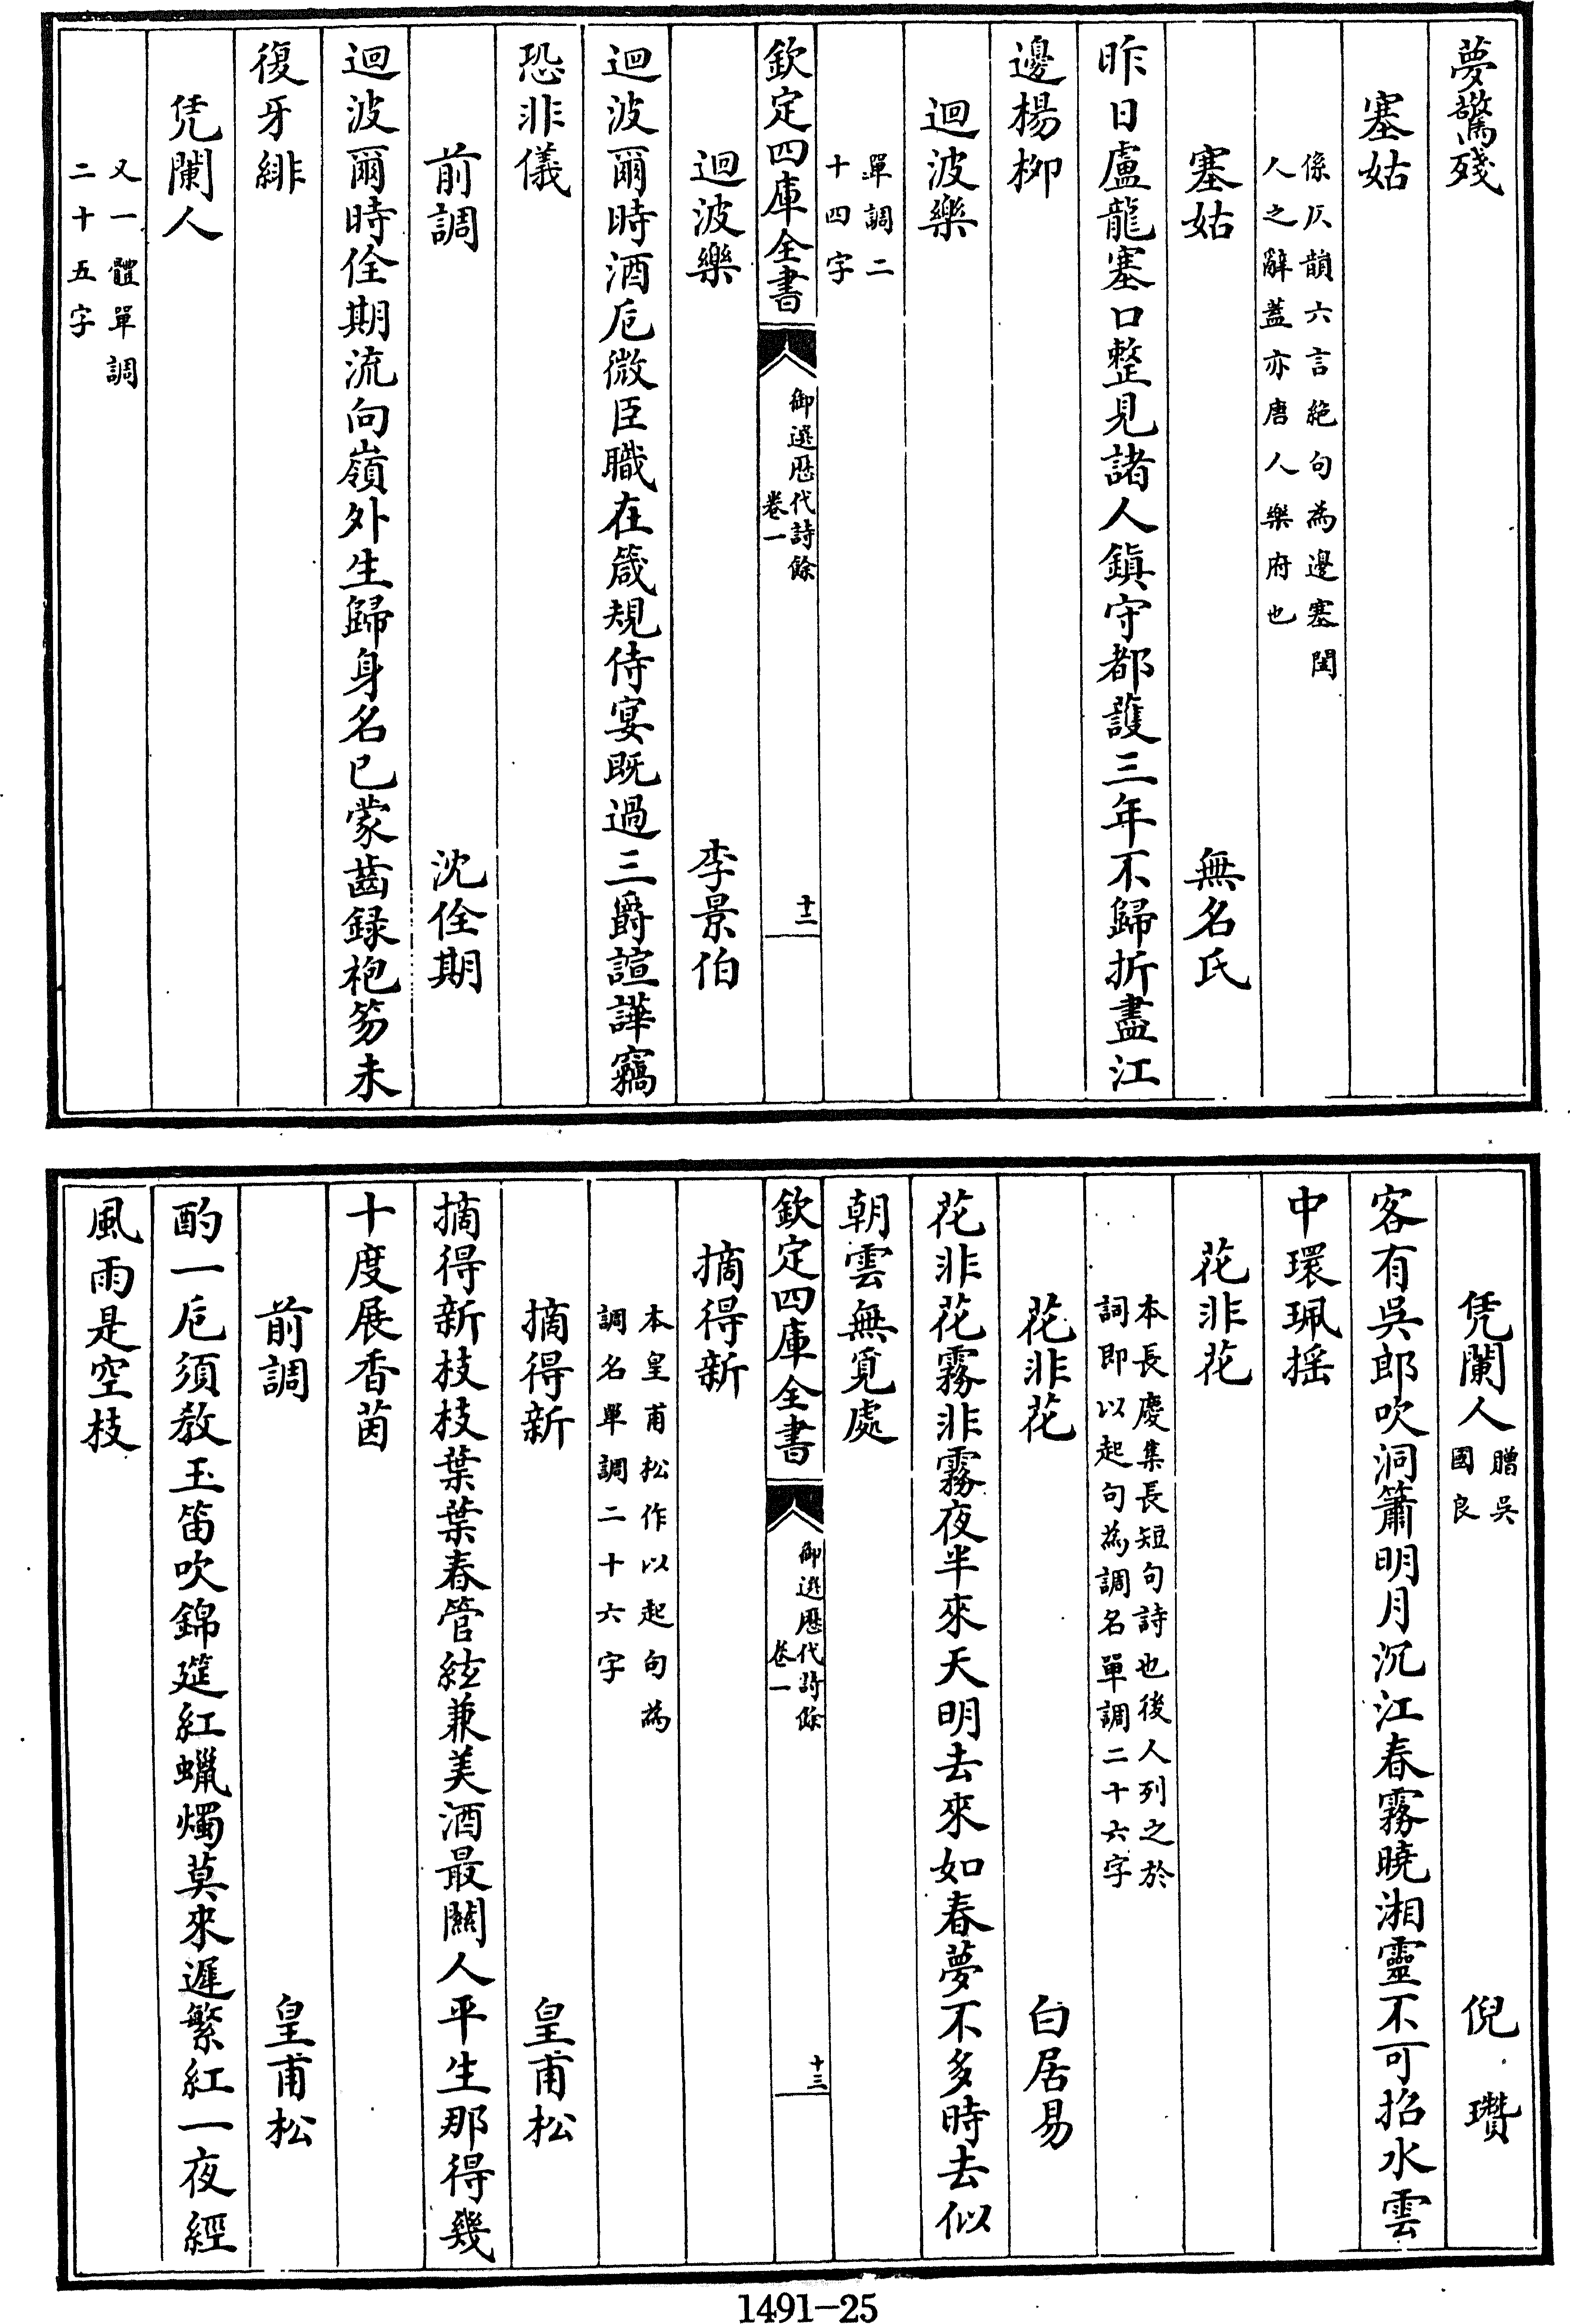 夢驚殘
塞姑
係仄韻六言絶句為邊塞閨
人之辭蓋亦唐人樂府也
塞姑 無名氏
昨日盧龍塞口整見諸人鎮守都護三年不歸折盡江
邊楊柳
迴波樂
單調二
十四字
欽定四庫全書
御選歷代詩餘
卷一
十二
迴波樂 李景伯
迴波爾時酒巵微臣職在箴規侍宴既過三爵諠譁竊
恐非儀
前調 沈佺期
迴波爾時佺期流向嶺外生歸身名已蒙齒録袍笏未
復牙緋
凭闌人
又一體單調
二十五字
凭闌人 贈吳
國良
倪瓚
客有吳郎吹洞簫明月沉江春霧曉湘靈不可招水雲
中環珮摇
花非花
本長慶集長短句詩也後人列之於
詞即以起句為調名單調二十六字
花非花 白居易
花非花霧非霧夜半來天明去來如春夢不多時去似
朝雲無覓處
欽定四庫全書
御選歷代詩餘
卷一
十三
摘得新
本皇甫松作以起句為
調名單調二十六字
摘得新 皇甫松
摘得新枝枝葉葉春管絃兼美酒最關人平生那得幾
十度展香茵
前調 皇甫松
酌一巵須教玉笛吹錦筵紅蠟燭莫來遲繁紅一夜經
風雨是空枝
1491-25